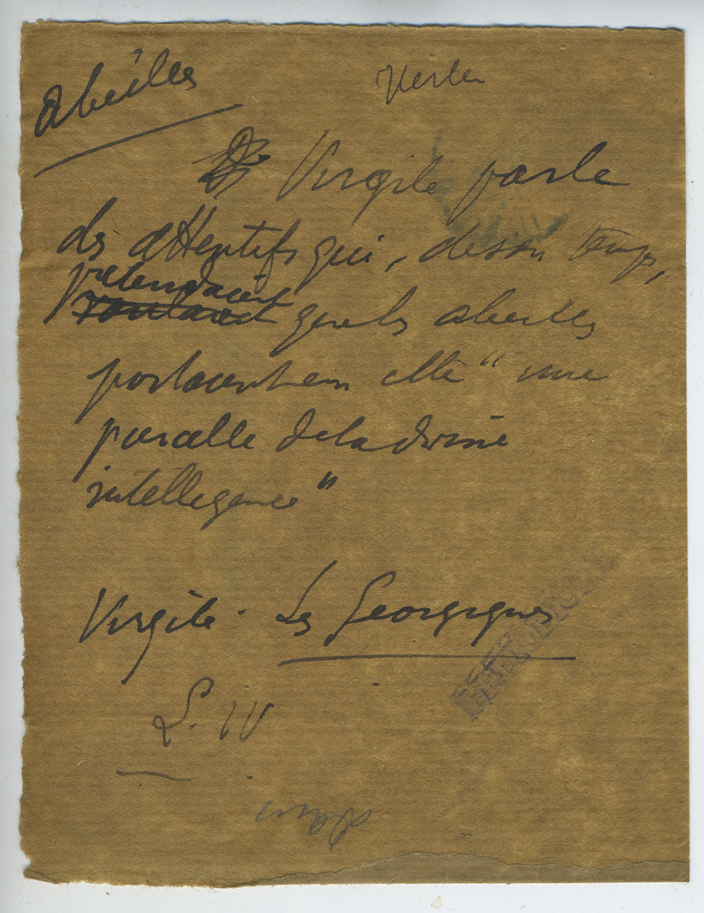 Abeilles
Virgile parle
des attentifs qui, de son temps,
prétendaient
voulaient que les abeilles
portaient en elle "une
parcelle de la divine
intelligence"
Virgile. Les Georgiques
L. IV